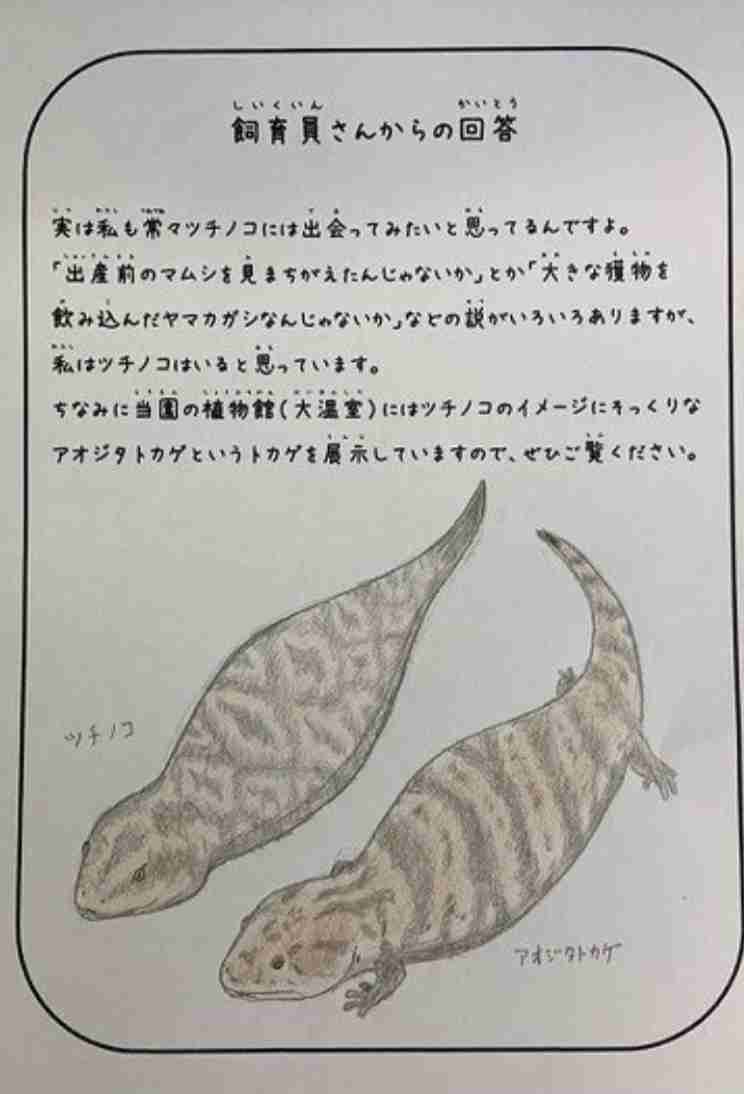 しいくいん かいとう
飼育員さんからの回答
実は私も常々ツチノコには出会ってみたいと思ってるんですよ。
「出産前のマムシを見まちがえたんじゃないか」とか「大きな獲物を
飲み込んだヤマカガシなんじゃないか」などの説がいろいろありますが、
私はツチノコはいると思っています。
ちなみに当園の植物館(大温室)にはツチノコのイメージにそっくりな
アオジタトカゲというトカゲを展示していますので、ぜひご覧ください。
ツチノコ
アオジタトカゲ